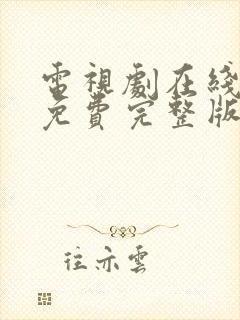 電視劇在綫
免費完整版
往亦雲